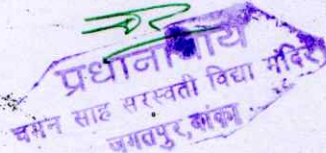 प्रधानाचार्य
चमन साह सरस्वती विद्या मंदिर
जगतपुर, बांका